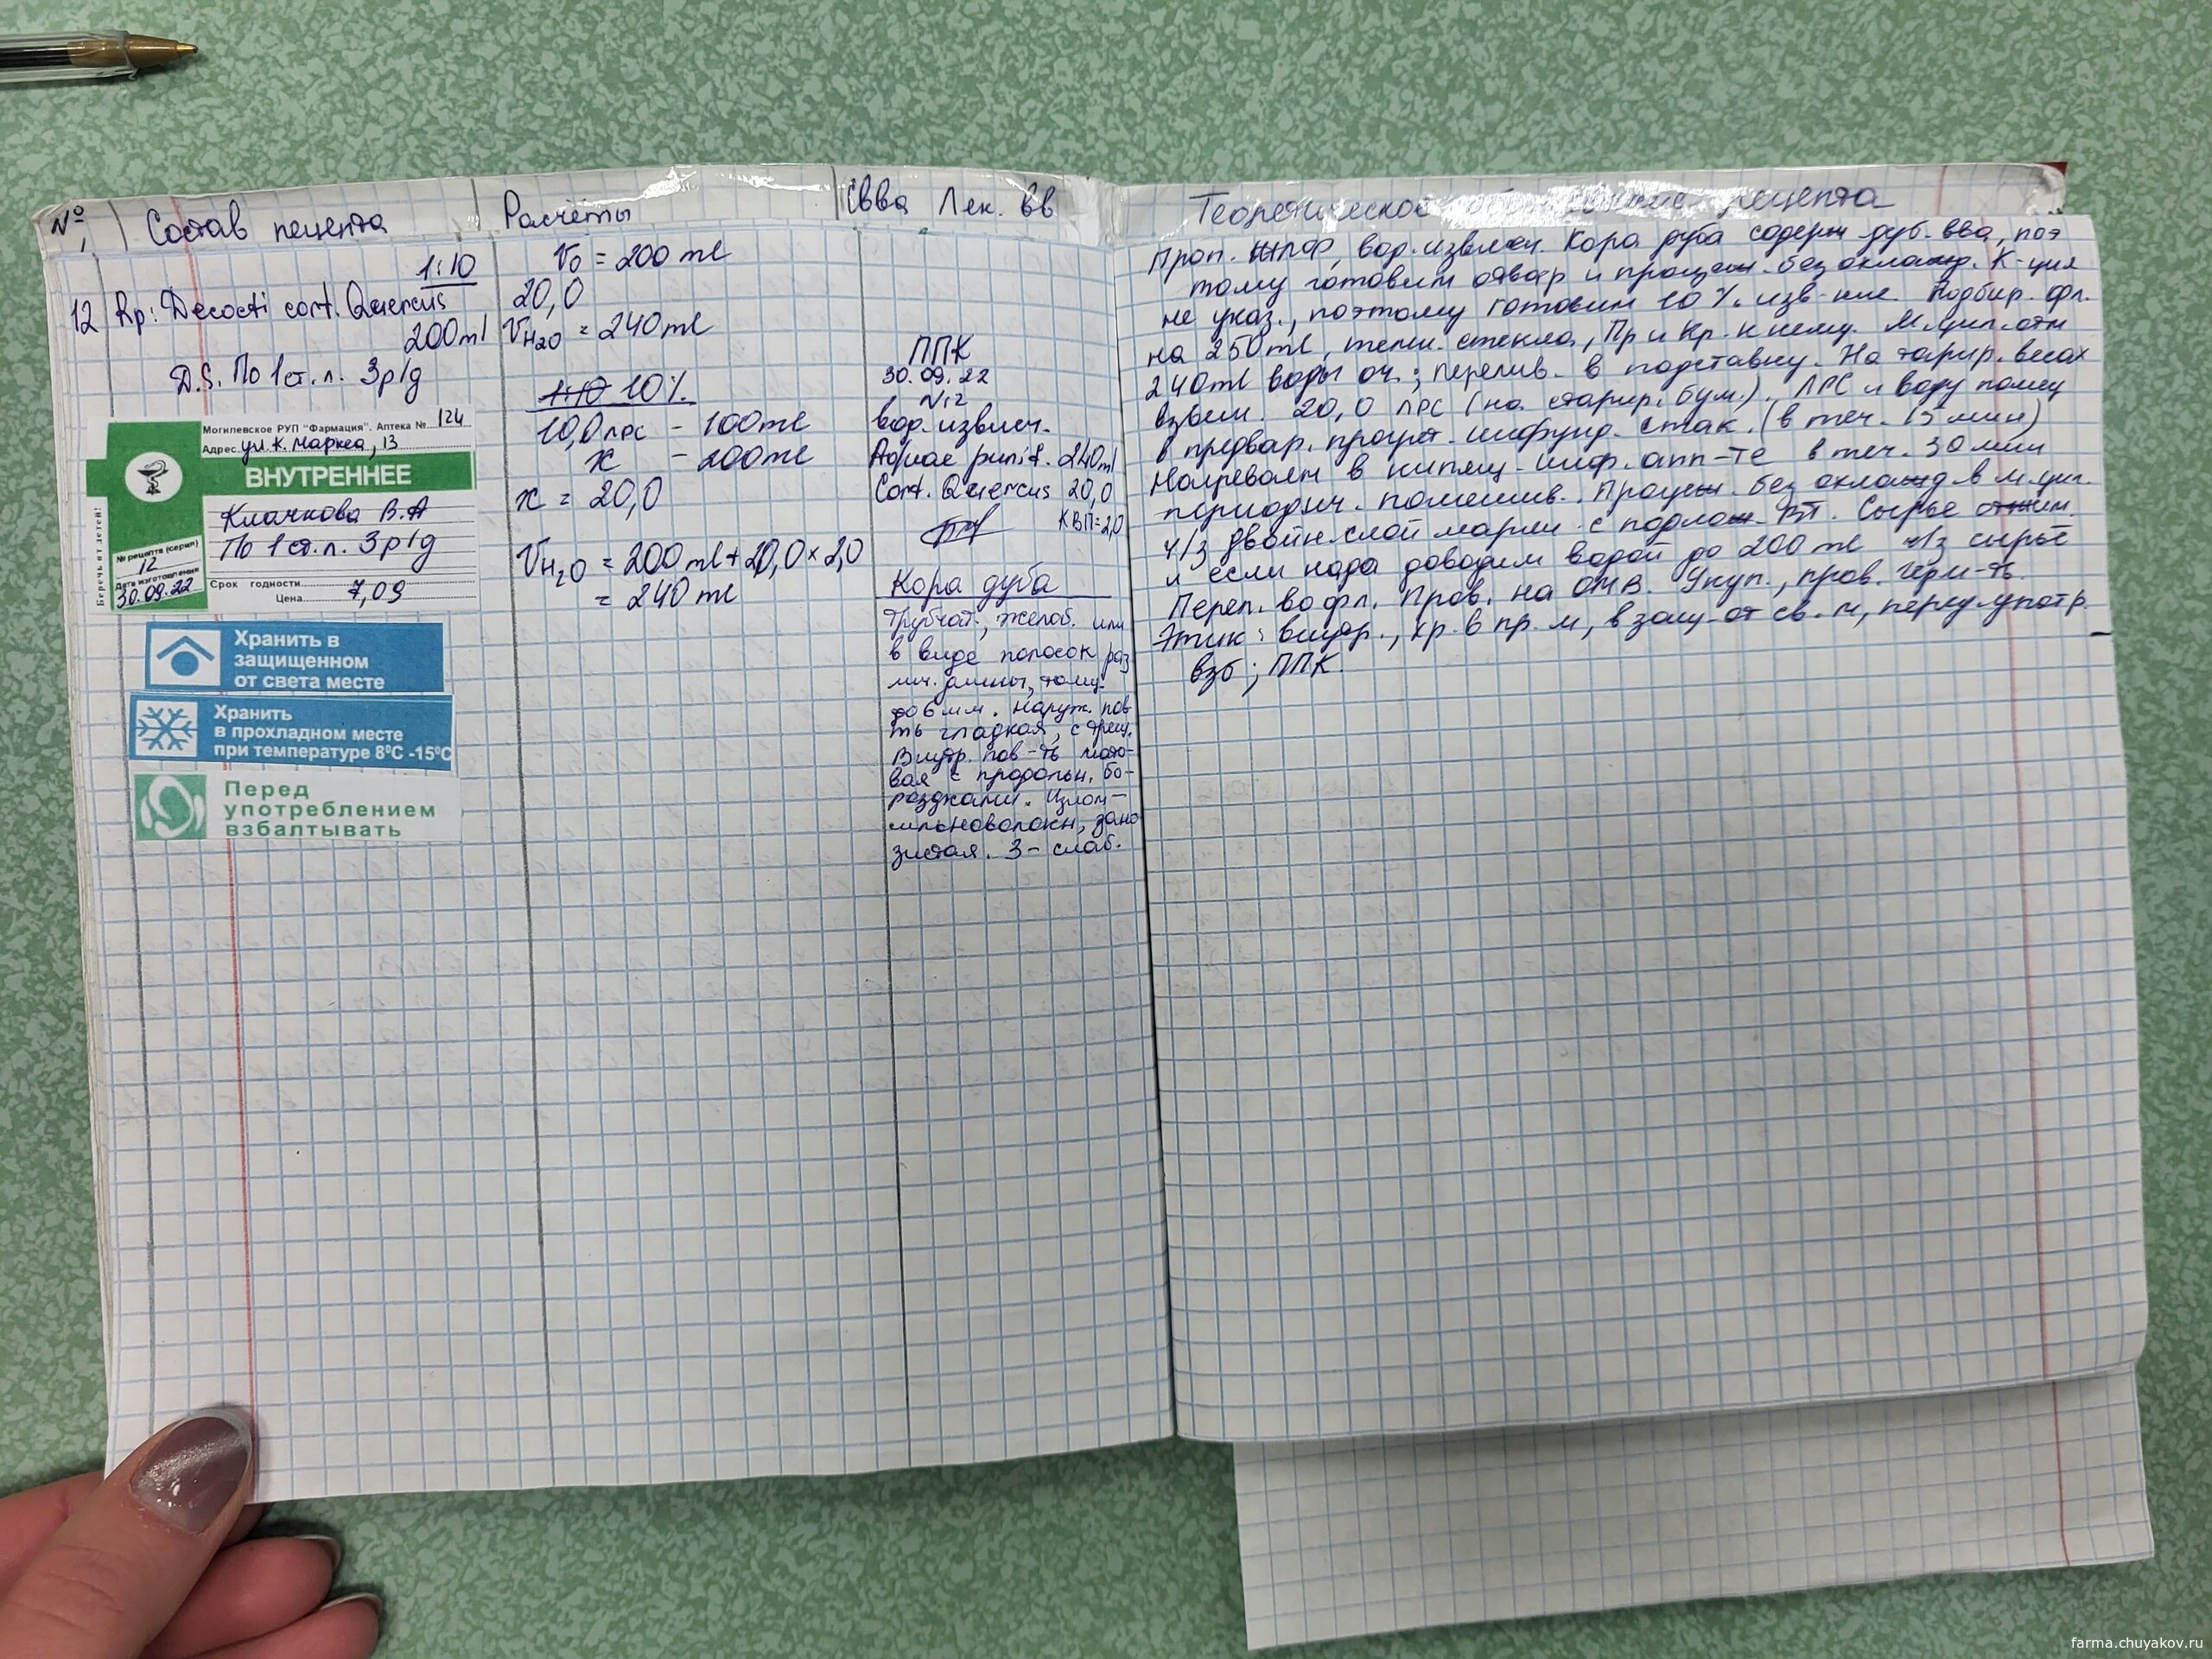 №
Состав рецепта
1:10
12 Rp: Decocti cort. Quercus
200ml
D.S. По 1 ст. л. 3 р/д
Могилевское РУП "Фармация". Аптека № 124
Адрес. ул. К. Маркса, 13
ВНУТРЕННЕЕ
Клачкова В.А
По 1 ст. л. 3 р/д
Беречь от детей!
№ рецепта (серия)
12
Дата изготовления
30.09.22
Срок годности
Цена 7,09
Хранить в
защищенном
от света месте
Хранить
в прохладном месте
при температуре 8°С -15°С
Перед
употреблением
взбалтывать
Расчёты
Vо = 200 ml
20,0
VH2O = 240 ml
1:10 10%
10,0 ЛРС – 100 ml
x – 200 ml
x = 20,0
VH2O = 200 ml + 20,0 × 2,0
= 240 ml
Свва Лек. вв
ППК
30.09.22
№12
вод. извлеч.
Aquae purif. 240 ml
Cort. Quercus 20,0
КВП=2,0
Кора дуба
Трубчат., желоб. или
в виде полосок раз
лич. длины, толщ.
до 6 мм. Наруж. пов
ть гладкая, с трещ.
Внутр. пов-ть мато-
вая с продольн. бо-
роздками. Излом-
зано
зистая. З – слаб.
Теоретическое рецепта
Проп. ЖЛФ, вод. извлеч. Кора дуба содерж дуб. вва, поэ
тому готовим отвар и процеж. без охлажд. К-ция
не указ., поэтому готовим 10% изв-ние. Подбир. фл.
на 250 ml, темн. стекла, Пр и Кр. к нему. М.цил. отм
240 ml воды оч.; перелив. в подставку. На тарир. весах
взвеш. 20,0 ЛРС (на старир. бум.). ЛРС и воду помещ
в предвар. прогрет. инфунд. стак. (в теч. 15 мин)
Нагреваем в кипящ. инф. апп-те в теч. 30 мин
периодич. помешив. Процеж. без охлажд. в м. цил.
ч/з двойн. слой марли с подлож. ВТ. Сырье отжим.
и если надо доводим водой до 200 ml ч/з сырьё
Переп. во фл. Пров. на ОМВ. Укуп., пров. герм-ть.
Этик: внутр., хр. в пр. м, в защ. от св. м, перед употр.
взб; ППК.
farma.chuyakov.ru